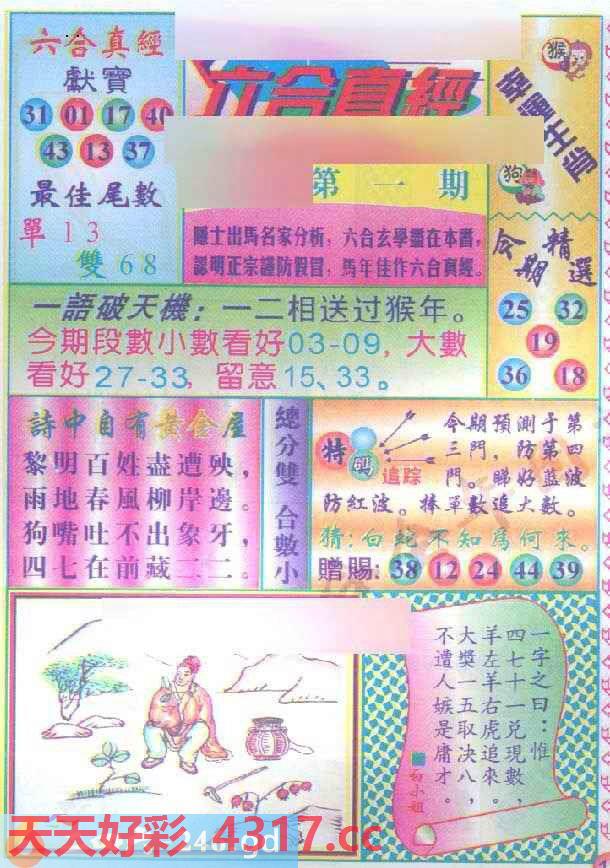 六合真經
獻寶
31 01 17 40
43 13 37
最佳尾數
單13
雙68
六合真經
第一期
隱士出馬名家分析，六合玄學盡在本書，
認明正宗謹防假冒，馬年佳作六合真經。
幸運生肖
猴
狗
今期精選
25 32
19
36 18
一語破天機：一二相送过猴年。
今期段數小數看好03-09，大數
看好27-33，留意15、33。
詩中自有黃金屋
黎明百姓盡遭殃，
雨地春風柳岸邊。
狗嘴吐不出象牙，
四七在前藏二二。
總分雙 合數小
特
碼
追踪
今期預測于第
三門，防第四
門。睇好藍波
防紅波。捧單數追大數。
猜：白蛇不知為何來。
贈賜：38 12 24 44 39
一字之曰：惟
四七十一兑現數，
羊左羊右虎追來。
大獎一五取決八，
不遭人嫉是庸才。
白小姐
天天好彩 4317.cc
246.gd